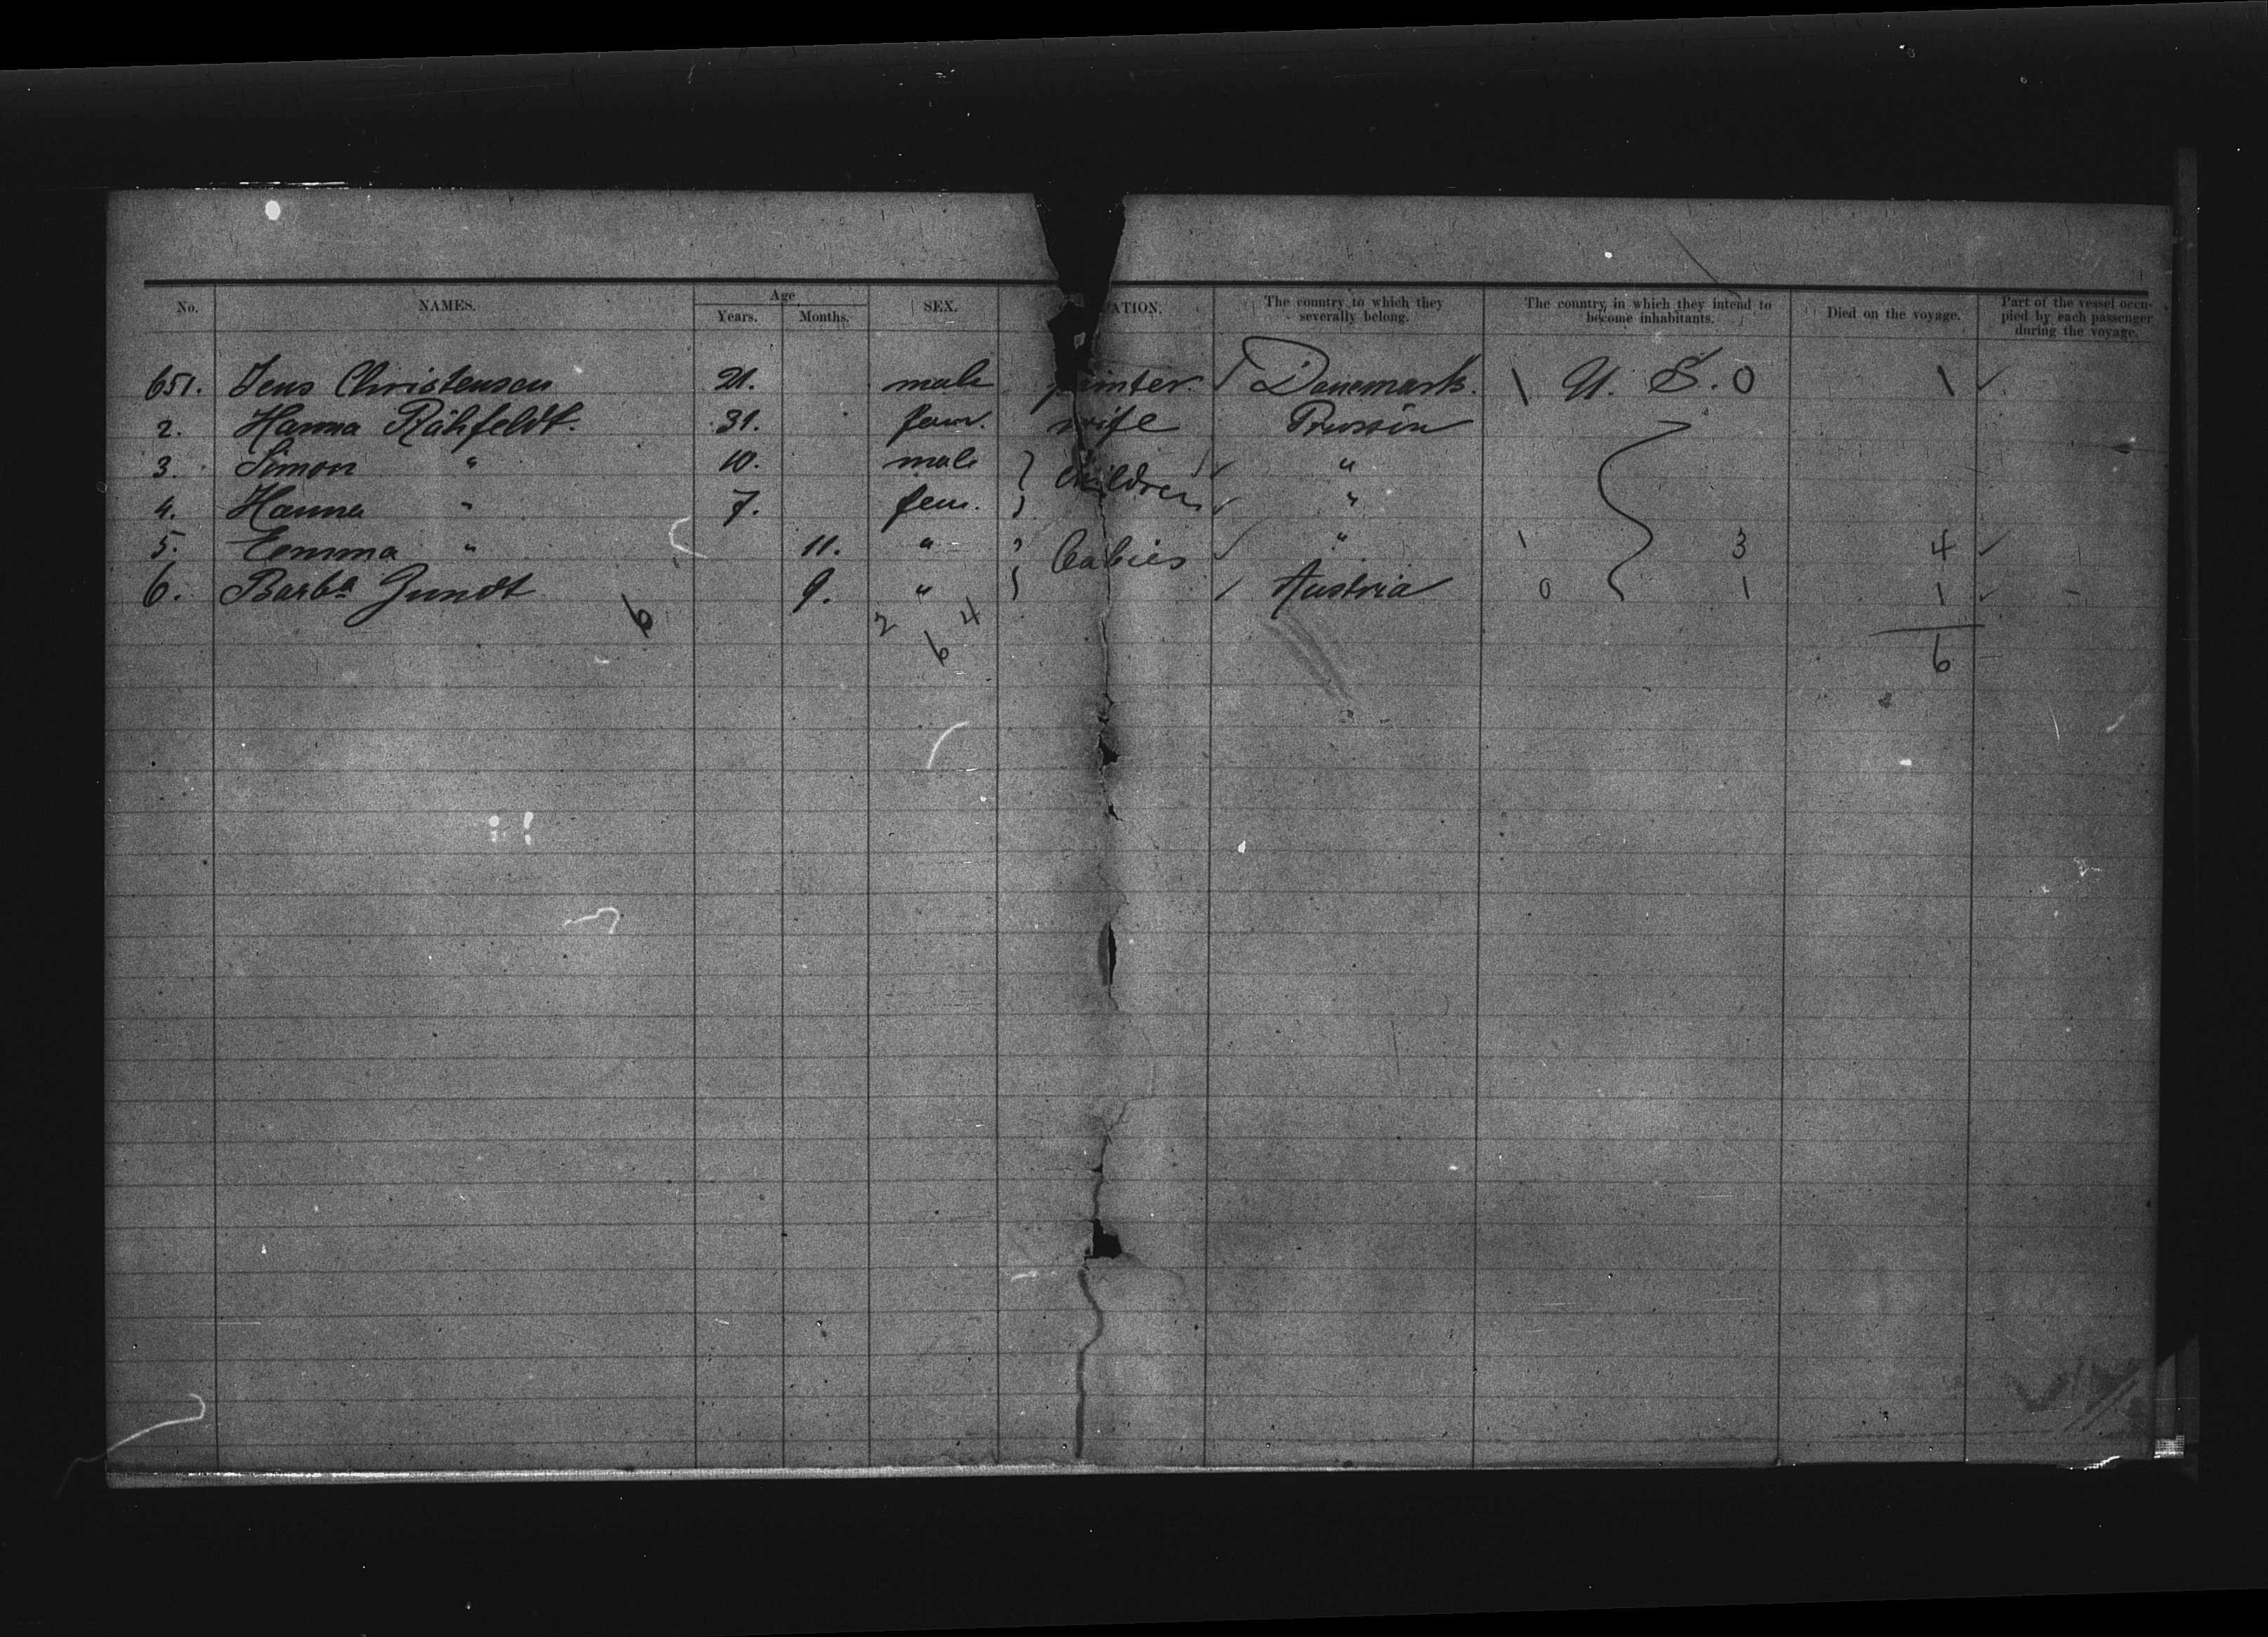 No. NAMES. Age Years. Months. SEX. PATION. The country to which they severally belong. The country, in which they intend to become inhabitants. Died on the voyage. Part of the vessel occupied by each passenger during the voyage.
651. Jens Christensen 21. male painter. Danemark. \ U. S. 0 1
2. Hanna Rähfeldt. 31. fem. wife Prussia
3. Simon " 10. male } children "
4. Hanna " 7. fem. "
5. Emma " 11. " } babies " 1 3 4
6. Barba Gundt 9. " Austria 0 1 1
6 2 4 6
6